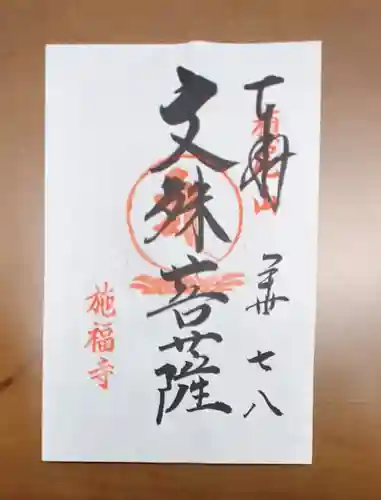 奉拝
七 八
文殊菩薩
施福寺